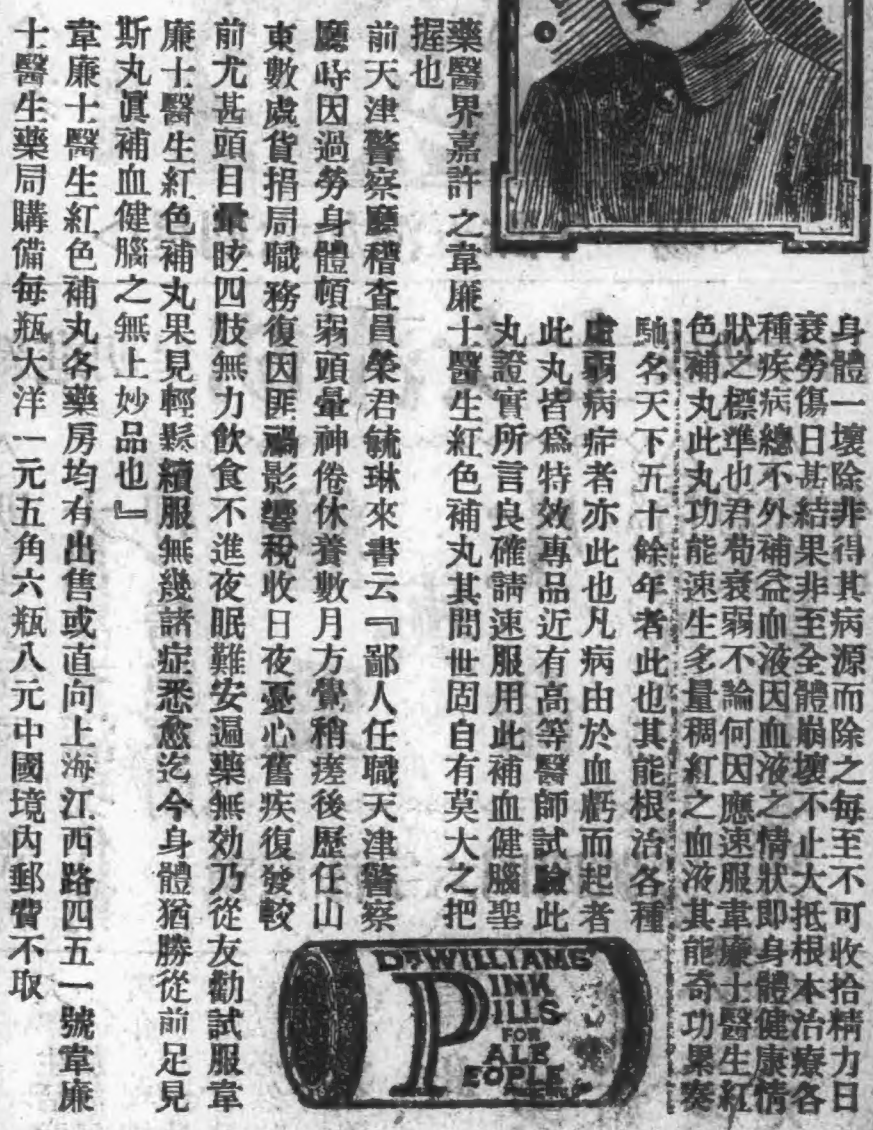 身體一壞除非得其病源而除之每至不可收拾精力日
衰勞傷日甚結果非至全體崩壞不止大抵根本治療各
種疾病總不外補益血液因血液之情狀即身體健康情
狀之標準也君苟衰弱不論何因應速服韋廉士醫生紅
色補丸此丸功能速生多量稠紅之血液其能奇功累奏
馳名天下五十餘年者此也其能根治各種
虛弱病症者亦此也凡病由於血虧而起者
此丸皆爲特效專品近有高等醫師試驗此
丸證實所言良確請速服用此補血健腦聖
藥醫界嘉許之韋廉士醫生紅色補丸其問世固自有莫大之把
握也
前天津警察廳稽查員榮君毓琳來書云『鄙人任職天津警察
廳時因過勞身體頓弱頭暈神倦休養數月方覺稍痊後歷任山
東數處貨捐局職務復因匪禍影響稅收日夜憂心舊疾復發較
前尤甚頭目暈眩四肢無力飲食不進夜眠難安遍藥無効乃從友勸試服韋
廉士醫生紅色補丸果見輕鬆續服無幾諸症悉愈迄今身體猶勝從前足見
斯丸眞補血健腦之無上妙品也』
韋廉士醫生紅色補丸各藥房均有出售或直向上海江西路四五一號韋廉
士醫生藥局購備每瓶大洋一元五角六瓶八元中國境內郵費不取
DR WILLIAMS'
PINK
PILLS
FOR
PALE
PEOPLE